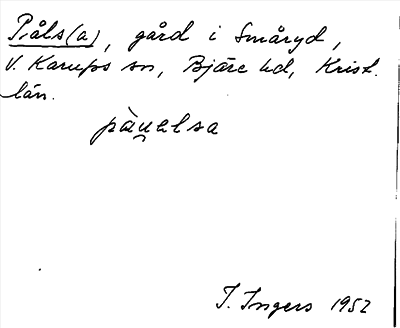 Påls(a), gård i Småryd,
V. Karups sn, Bjäre hd, Krist.
län.
pàu̯alsa
I. Ingers 1952